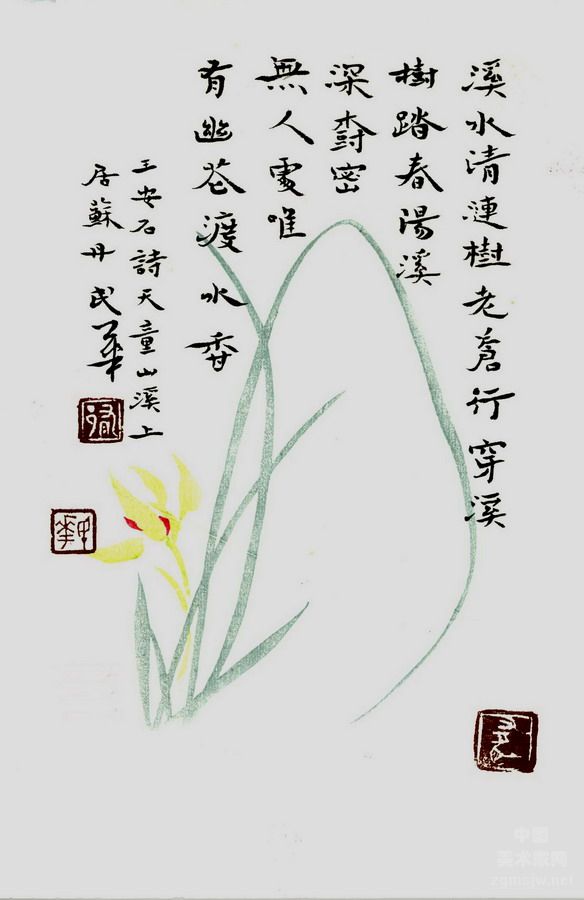 溪水清漣樹老蒼行穿溪
樹踏春陽溪
深樹密
無人處唯
有幽花渡水香
王安石詩天童山溪上
居蘇丹民華
中国
美术家网
zgmsjw.net